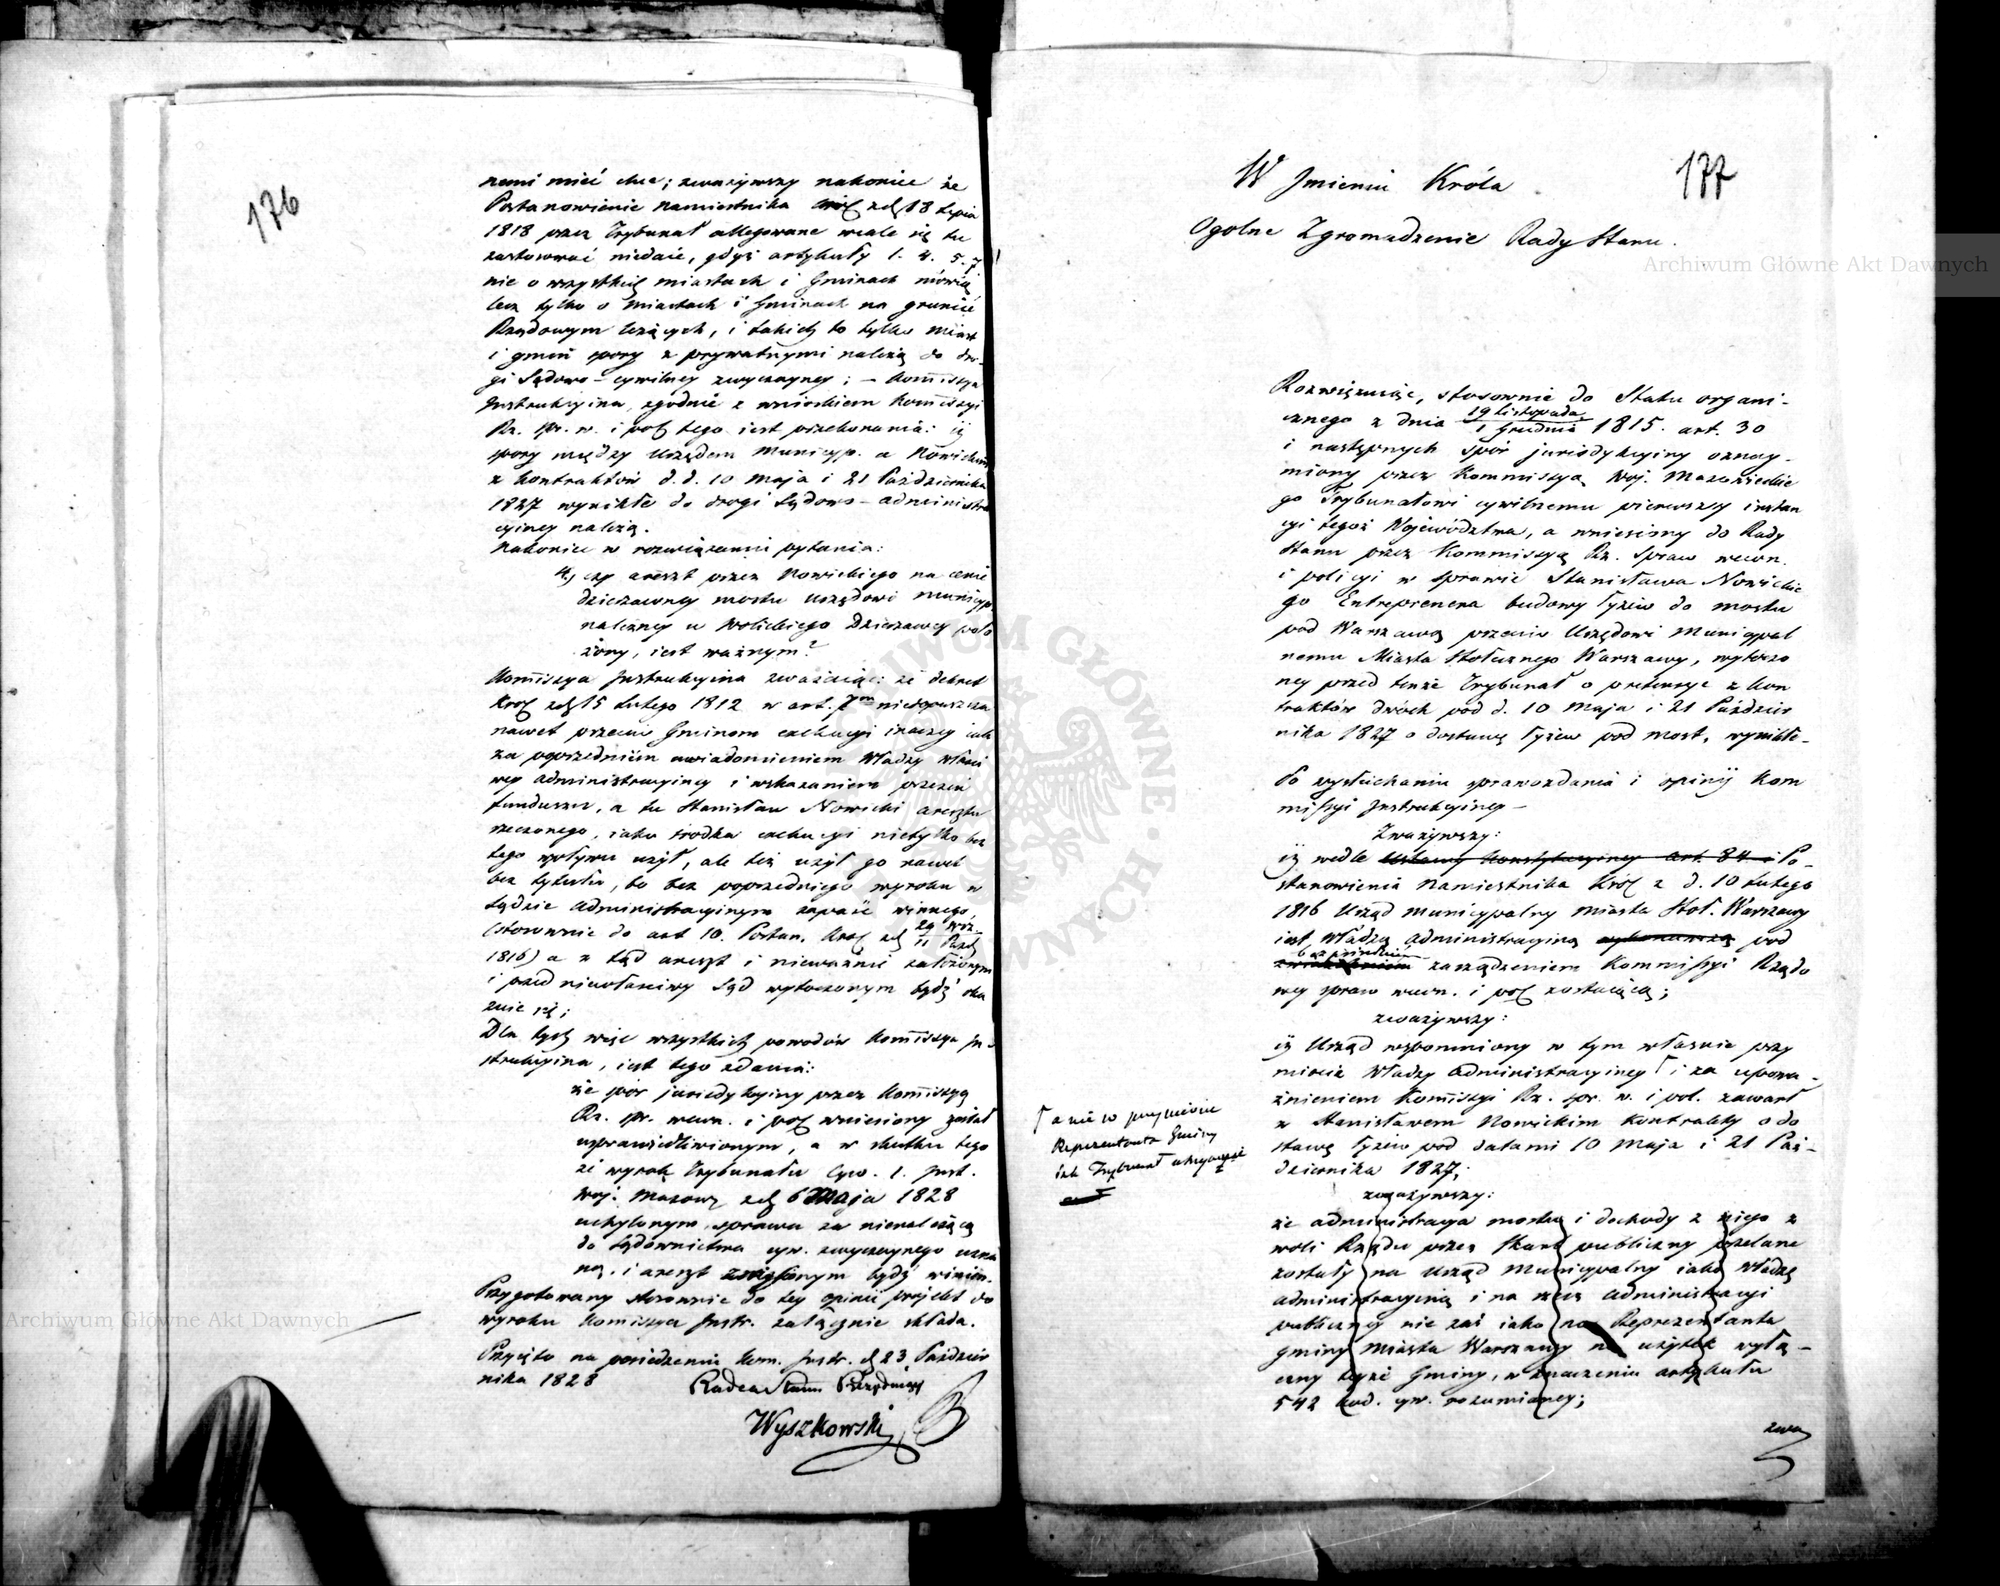 176
nemi mieć chce; zważywszy nakoniec że
Postanowienie Namiestnika Król. z d. 18 Lipca
1818 przez Trybunał allegowane wcale się tu
zastosować niedaie, gdyż artykuły 1. 4. 5. 7.
nie o wszystkich miastach i Gminach mówią
lecz tylko o miastach i Gminach na gruncie
Rządowym leżących, i takich to tylko miast
i gmin spory z prywatnymi należą do dro-
gi Sądowo-cywilney zwyczayney; – Kommissya
Instrukcyina, zgodnie z wnioskiem Kommissyi
Rz. Spr. w. i pol. tego iest przekonania: iż
spory między Urzędem Municyp. a Nowickim
z kontraktów d. d. 10 Maja i 21 Października
1827 wynikłe do drogi Sądowo-administra
cyiney należą.
Nakoniec w rozwiązaniu pytania:
4, czy areszt przez Nowickiego na cenie
dzierżawney mostu Urzędowi municyp.
należney u Wolickiego Dzierżawcy poło
żony, iest ważnym?
Kommissya Instrukcyina zważaiąc: że dekret
Król. z d. 15 Lutego 1812 w art. 7ym niedopuszcza
nawet przeciw Gminom exekucyi inaczey iak
za poprzedniem uwiadomieniem Władzy właści
wey administracyiney i wskazaniem przez nią
funduszu, a tu Stanisław Nowicki aresztu
rzeczonego, iako środka exekucyi nietylko bez
tego wpływu użył, ale też użył go nawet
bez tytułu, bo bez poprzedniego wyroku w
Sądzie administracyinym zapaść winnego,
(stosownie do art 10. Postan. Król. z d. 29 Wrz.
11 Paźd.
1816) a z tąd areszt i nieważnie założonym
i przed niewłaściwy Sąd wytoczonym bydź oka
zuie się;
Dla tych więc wszystkich powodów Kommissya In
strukcyina, iest tego zdania:
że spór jurisdykcyiny przez Kommissyą
Rz. Spr. wewn. i pol. wniesiony został
usprawiedliwionym, a w skutku tego
że wyrok Trybunału Cyw. 1. Inst.
Woj. Mazow. z d. 6 Maja 1828
uchylonym, sprawa za nienależącą
do Sądownictwa cyw. zwyczaynego uzna
ną, i areszt zniesionym bydź winien.
Przygotowany stosownie do tey opinii projekt do
wyroku Kommissya Instr. załącznie składa.
Przyięto na posiedzeniu Kom. Instr. d. 23 Paździer
nika 1828
Radca Stanu Prezyduiący
Wyszkowski
177
W Jmieniu Króla
Ogolne Zgromadzenie Rady Stanu.
Rozwiązuiąc, stosownie do Statu organi-
cznego z dnia 19 Listopada
1 Grudnia 1815. art. 30
i następnych spór jurisdykcyiny oznay-
miony przez Kommissyą Woj. Mazowieckie
go Trybunałowi cywilnemu pierwszey instan
cyi tegoż Województwa, a wniesiony do Rady
Stanu przez Kommissyą Rz. Spraw wewn.
i policyi w sprawie Stanisława Nowickie
go Entreprenera budowy łyżew do mostu
pod Warszawą przeciw Urzędowi Municypal
nemu Miasta Stołecznego Warszawy, wytoczo
ney przed tenże Trybunał o pretensye z kon
traktów dwóch pod d. 10 Maja i 21 Paździer
nika 1827 o dostawę łyżew pod most, wynikłe-
Po wysłuchaniu sprawozdania i opinij Kom
missyi Instrukcyiney –
Zważywszy:
iż wedle Ustawy Konstytucyiney art. 84 i Po-
stanowienia Namiestnika Król. z d. 10 Lutego
1816 Urząd municypalny miasta Stoł. Warszawy
iest Władzą administracyiną wykonawczą pod
bezpośredniem
zarządzeniem Kommissyi Rządo
wey spraw wewn. i pol. zostaiącą;
zważywszy:
iż Urząd wspomniony w tym właśnie przy
miocie Władzy administracyiney Γ i za upowa-
żnieniem Kommissyi Rz. spr. w. i pol. zawarł
z Stanisławem Nowickim kontrakty o do
stawę łyżew pod datami 10 Maja i 21 Paź-
dziernika 1827;
Γ a nie w przymiocie
Reprezentanta Gminy
iak Trybunał utrzymuie
zważywszy:
że administracya mostu i dochody z niego z
woli Rządu przez Skarb publiczny przelane
zostały na Urząd Municypalny iako Władzę
administracyiną i na rzecz administracyi
publiczney nie zaś iako na Reprezentanta
gminy Miasta Warszawy na użytek wyłą-
czny teyże Gminy, w znaczeniu artykułu
542 kod. cyw. rozumianey;
zwa
Archiwum Główne Akt Dawnych
Archiwum Główne Akt Dawnych
ARCHIWUM GŁÓWNE AKT DAWNYCH